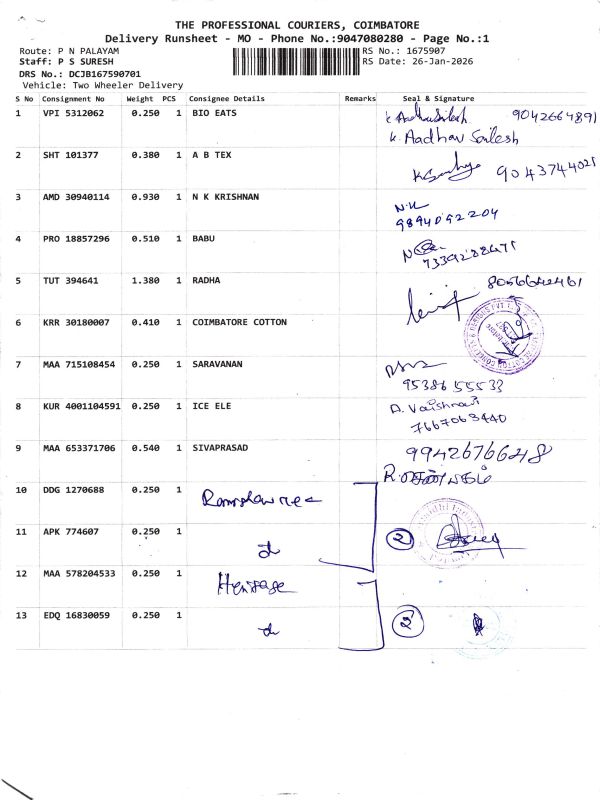 THE PROFESSIONAL COURIERS, COIMBATORE
Delivery Runsheet - MO - Phone No.:9047080280 - Page No.:1
Route: P N PALAYAM
Staff: P S SURESH
DRS No.: DCJB167590701
Vehicle: Two Wheeler Delivery
RS No.: 1675907
RS Date: 26-Jan-2026
S No Consignment No Weight PCS Consignee Details Remarks Seal & Signature
1 VPI 5312062 0.250 1 BIO EATS 9042664891
K. Aadhav Sailesh
2 SHT 101377 0.380 1 A B TEX 9043744025
3 AMD 30940114 0.930 1 N K KRISHNAN N.K
9894092204
4 PRO 18857296 0.510 1 BABU
7339288471
5 TUT 394641 1.380 1 RADHA 8056642461
6 KRR 30180007 0.410 1 COIMBATORE COTTON
7 MAA 715108454 0.250 1 SARAVANAN
9538655533
8 KUR 4001104591 0.250 1 ICE ELE A. Vaishnavi
7667063440
9 MAA 653371706 0.540 1 SIVAPRASAD 9942676648
10 DDG 1270688 0.250 1
11 APK 774607 0.250 1 2
12 MAA 578204533 0.250 1 Heritage
13 EDQ 16830059 0.250 1 2